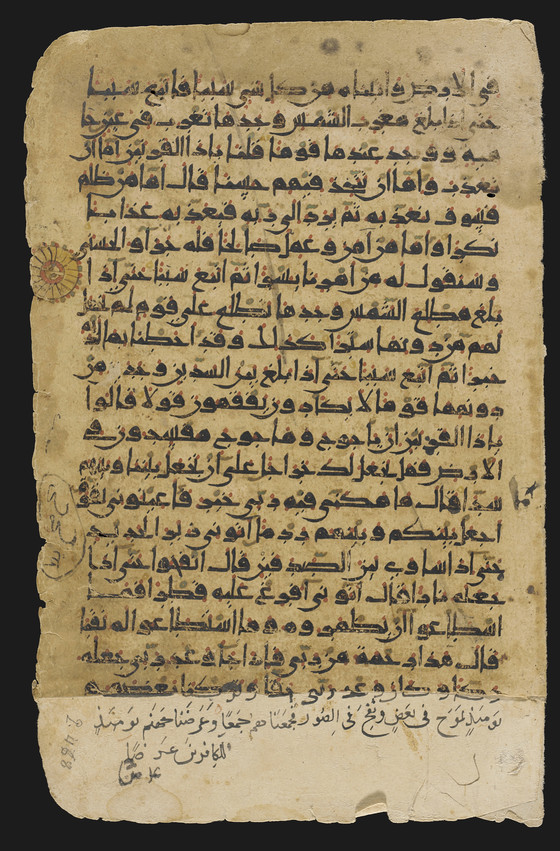 في الارض واتيناه من كل شي سببا فاتبع سببا
حتى اذا بلغ مغرب الشمس وجدها تغرب في عين حا
ميه ووجد عندها قوما قلنا ياذا القرنين اما ان
تعذب واما ان تتخذ فيهم حسنا قال اما من ظلم
فسوف نعذبه ثم يرد الى ربه فيعذبه عذابا
نكرا واما من امن وعمل صالحا فله جزاو الحسنى
وسنقول له من امرنا يسرا ثم اتبع سببا حتى اذا
بلغ مطلع الشمس وجدها تطلع على قوم لم نجعل
لهم من دونها سترا كذلك وقد احطنا بما لديه
خبرا ثم اتبع سببا حتى اذا بلغ بين السدين وجد من
دونهما قوما لا يكادون يفقهون قولا قالوا
ياذا القرنين ان ياجوج وماجوج مفسدون في
الارض فهل نجعل لك خراجا على ان تجعل بيننا وبينهم
سدا قال ما مكني فيه ربي خير فاعينوني بقوة
اجعل بينكم وبينهم ردما اتوني زبر الحديد
حتى اذا ساوى بين الصدفين قال انفخوا حتى اذا
جعله نارا قال اتوني افرغ عليه قطرا فما
اسطاعوا ان يظهروه وما استطاعوا له نقبا
قال هذا رحمة من ربي فاذا جا وعد ربي جعله
دكا وكان وعد ربي حقا وتركنا بعضهم
يومئذ يموج في بعض ونفخ في الصور فجمعناهم جمعا وعرضنا جهنم يومئذ
للكافرين عرضا